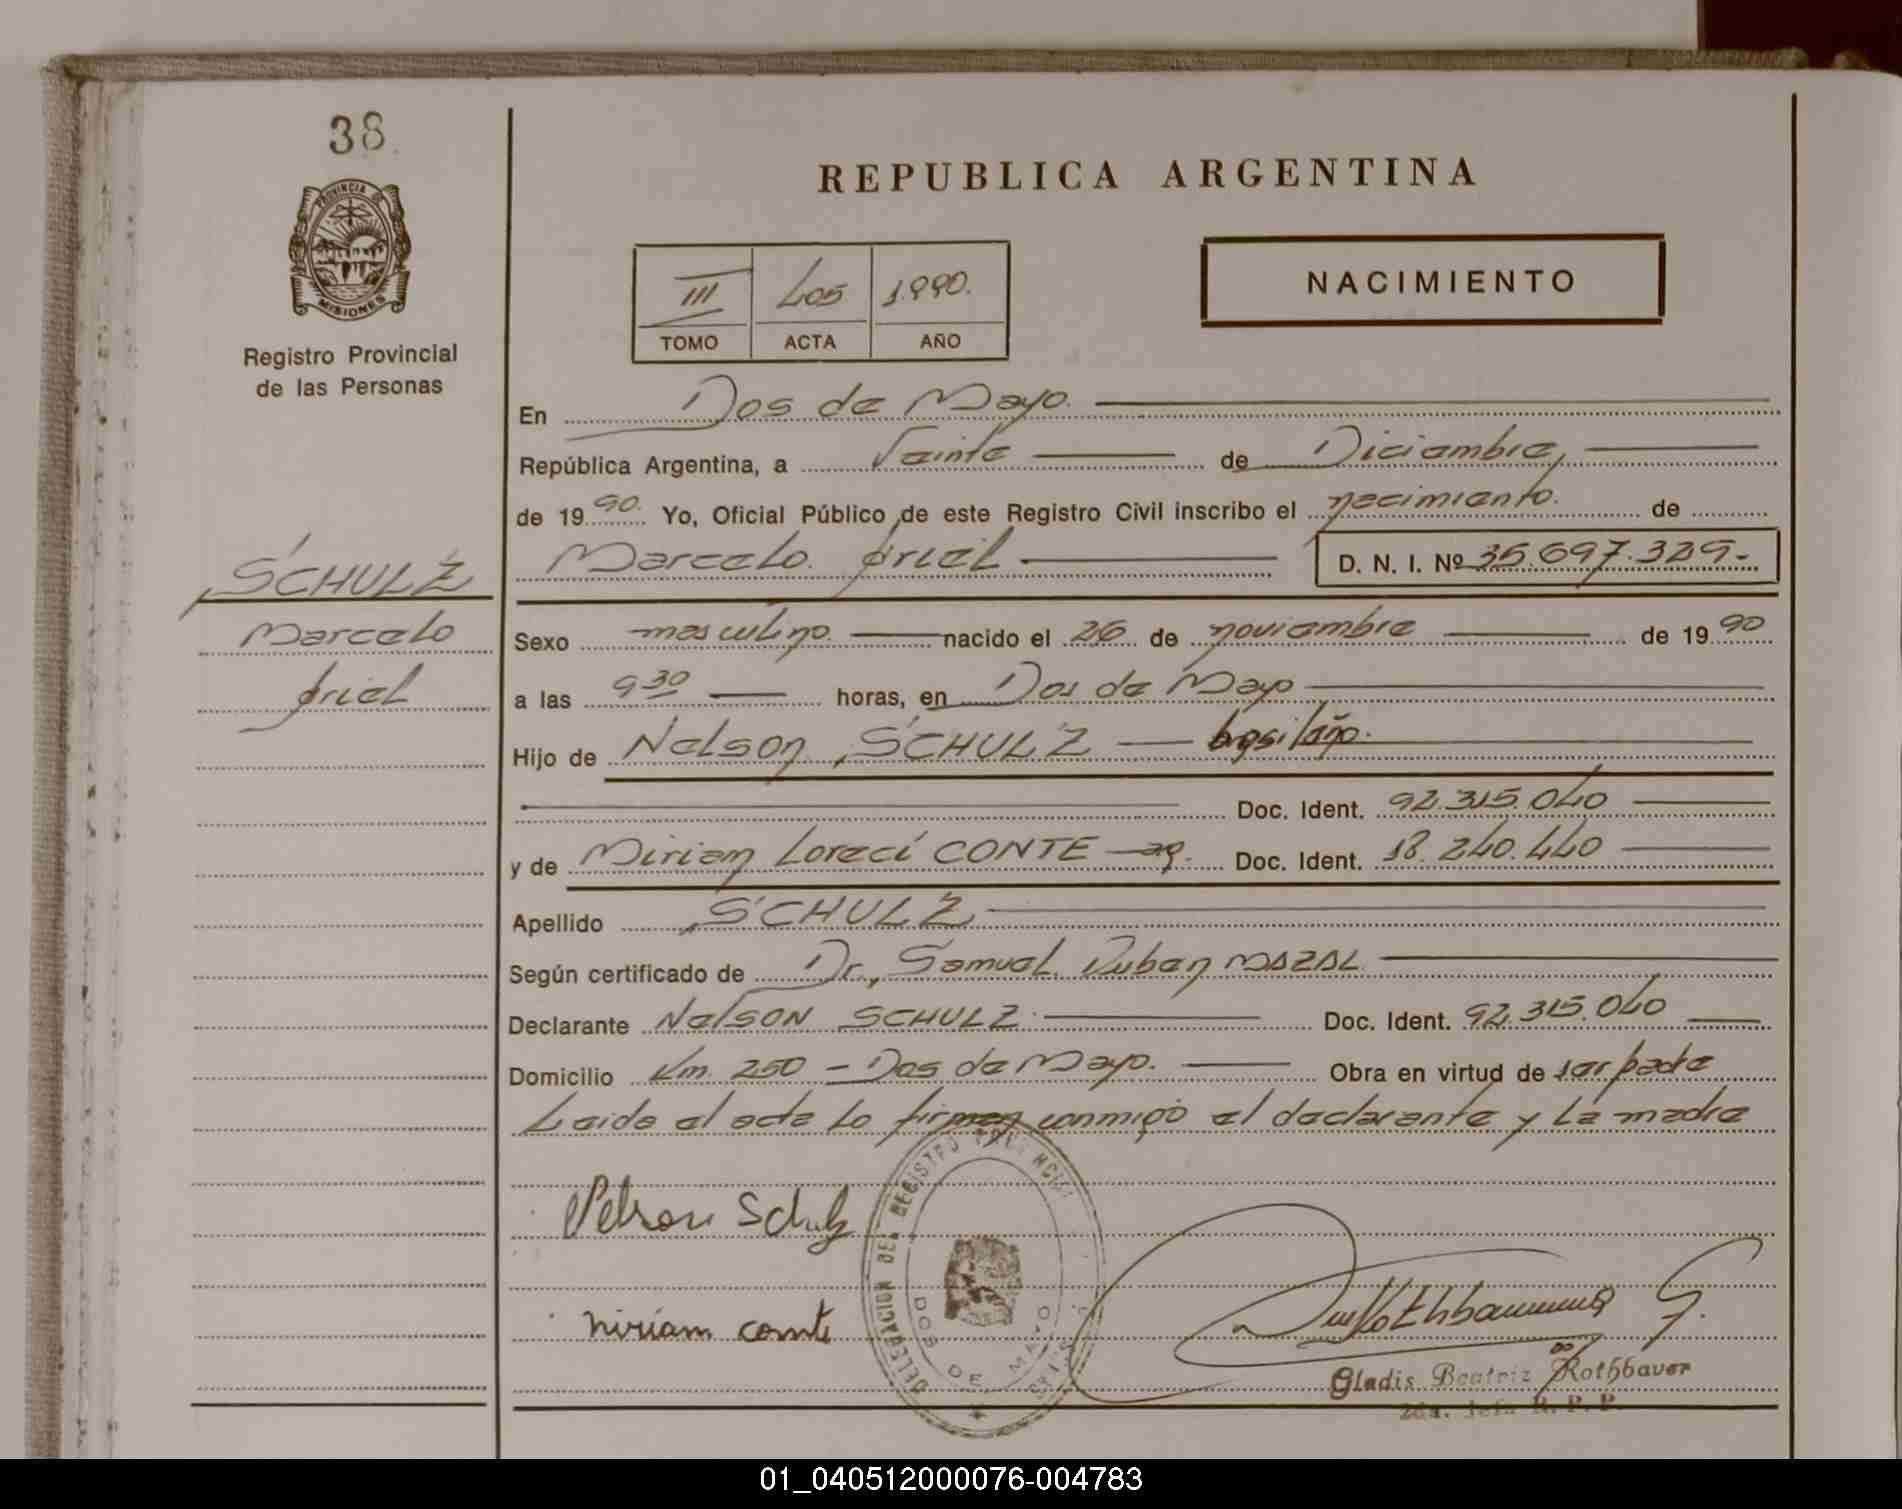 38
PROVINCIA DE
MISIONES
Registro Provincial
de las Personas
SCHULZ
Marcelo
Ariel
REPUBLICA ARGENTINA
III 405 1.990.
TOMO ACTA AÑO
NACIMIENTO
En Dos de Mayo.
República Argentina, a Veinte de Diciembre,
de 19 90. Yo, Oficial Público de este Registro Civil inscribo el nacimiento. de
Marcelo Ariel D. N. I. Nº 35.697.329.-
Sexo masculino. nacido el 26 de noviembre de 19 90
a las 9 30 horas, en Dos de Mayo
Hijo de Nelson SCHULZ brasileño.
Doc. Ident. 92.315.040
y de Miriam Loreci CONTE - ar. Doc. Ident. 18.240.440
Apellido SCHULZ
Según certificado de Dr. Samuel Ruben MAZAL
Declarante Nelson SCHULZ Doc. Ident. 92.315.040
Domicilio Km. 250 - Dos de Mayo. Obra en virtud de ser padre
Leida el acta lo firman conmigo el declarante y la madre
DELEGACION DEL REGISTRO PROVINCIAL
DOS DE MAYO
Nelson Schulz
Miriam Conte
Gladis Beatriz Rothbauer
2da. Jefa R.P.P.
01_040512000076-004783